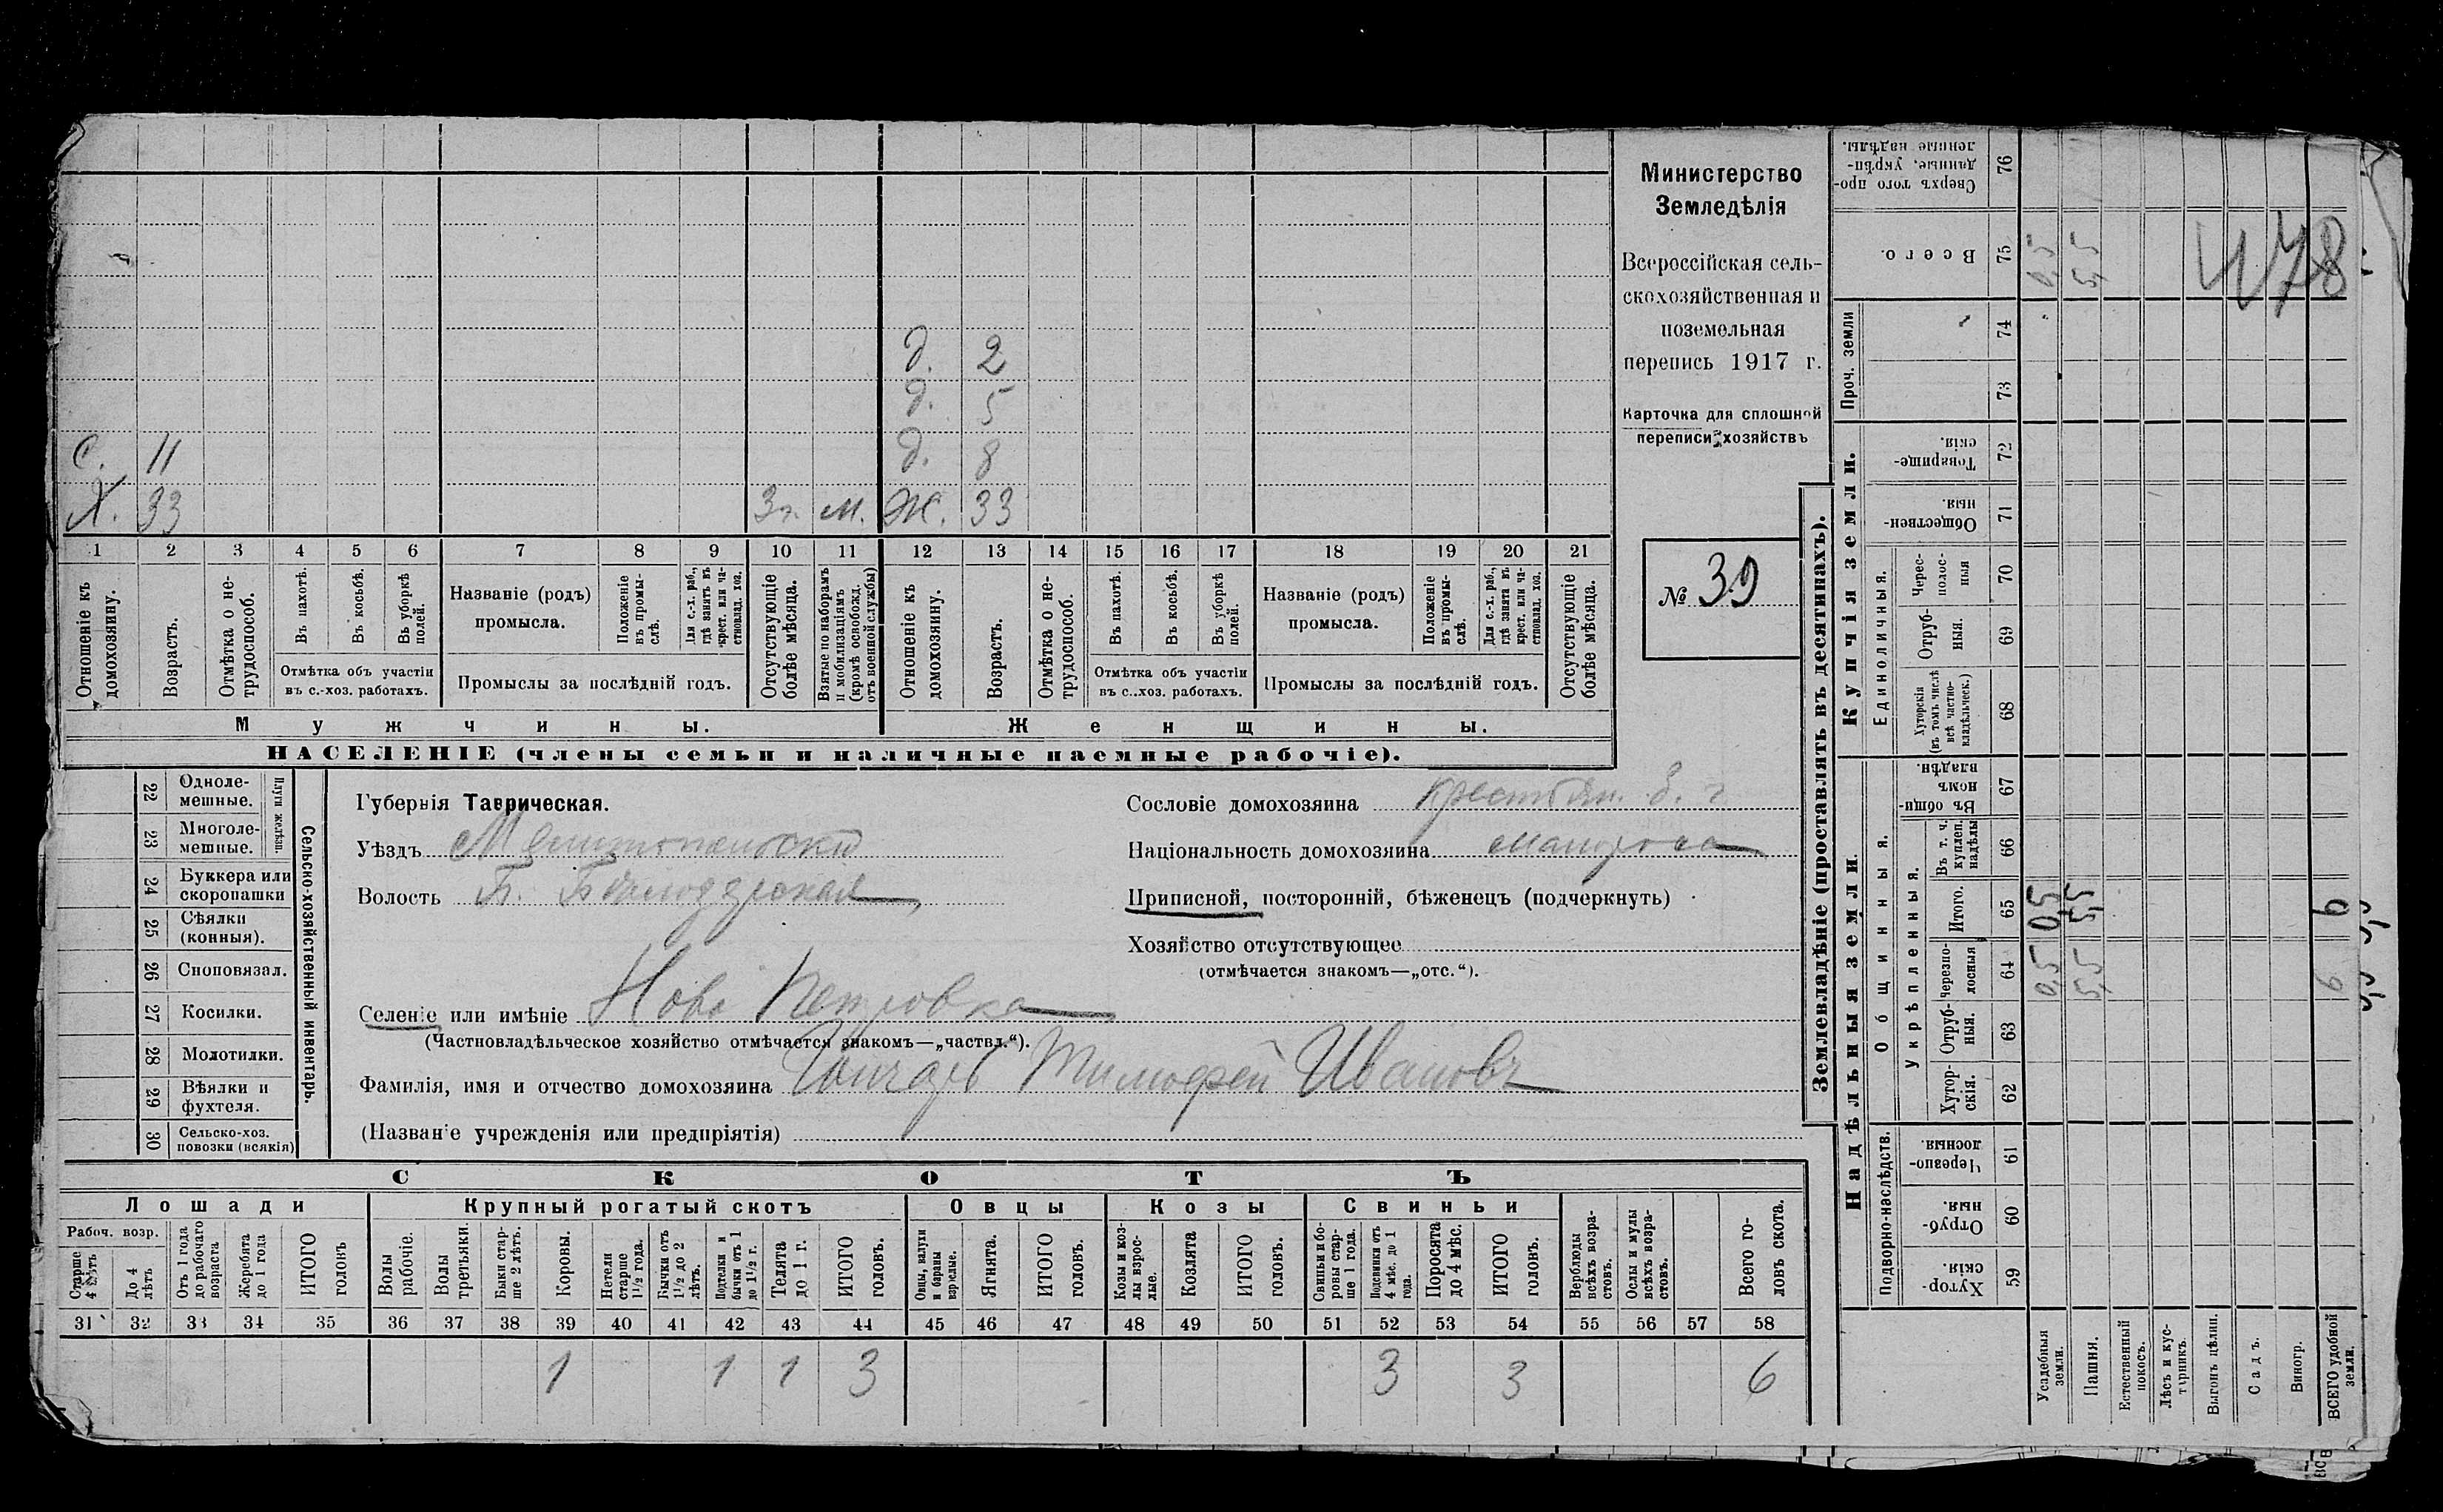 д. 2
д. 5
с. 11 д. 8
Х. 33 3г. м. Ж. 33
1 2 3 4 5 6 7 8 9 10 11 12 13 14 15 16 17 18 19 20 21
Отношеніе къ домохозяину.
Возрастъ.
Отмѣтка о не-трудоспособ.
Въ пахотѣ.
Въ косьбѣ.
Въ уборкѣ полей.
Отмѣтка объ участіи
въ с.-хоз. работахъ.
Названіе (родъ)
промысла.
Положеніе въ промы-слѣ.
Для с.-х. раб., гдѣ занятъ въ крест. или ча-стновлад. хоз.
Промыслы за послѣдній годъ.
Отсутствующіе болѣе мѣсяца.
Взятые по наборамъ и мобилизаціямъ (кромѣ освобожд. отъ военной службы)
Отношеніе къ домохозяину.
Возрастъ.
Отмѣтка о не-трудоспособ.
Въ пахотѣ.
Въ косьбѣ.
Въ уборкѣ полей.
Отмѣтка объ участіи
въ с..хоз. работахъ.
Названіе (родъ)
промысла.
Положеніе въ промы-слѣ.
Для с.-х. раб., гдѣ занята въ крест. или ча-стновлад. хоз.
Промыслы за послѣдній годъ.
Отсутствующіе болѣе мѣсяца.
Мужчины.
Женщины.
НАСЕЛЕНІЕ (члены семьи и наличные наемные рабочіе).
Министерство
Земледѣлія
Всероссійская сель-
скохозяйственная и
поземельная
перепись 1917 г.
Карточка для сплошной
переписи хозяйствъ
№ 39
22 Одноле-мешные.
23 Многоле-мешные.
Плуги желѣзн.
24 Буккера или скоропашки
25 Сѣялки (конныя).
26 Сноповязал.
27 Косилки.
28 Молотилки.
29 Вѣялки и фухтеля.
30 Сельско-хоз. повозки (всякія)
Сельско-хозяйственный инвентарь.
Губернія Таврическая.
Уѣздъ Мелитопольскій
Волость Б. Бѣлозерская
Селеніе или имѣніе Ново Петровка
(Частновладѣльческое хозяйство отмѣчается знакомъ—„частвл.“).
Фамилія, имя и отчество домохозяина Гончаръ Тимофей Ивановъ
(Названіе учрежденія или предпріятія)
Сословіе домохозяина крестьян.
Національность домохозяина малоросс
Приписной, посторонній, бѣженецъ (подчеркнуть)
Хозяйство отсутствующее
(отмѣчается знакомъ—„отс.“).
СКОТЪ
Лошади Крупный рогатый скотъ Овцы Козы Свиньи
Рабоч. возр.
Старше 4 лѣтъ
До 4 лѣтъ
Отъ 1 года до рабочаго возраста
Жеребята до 1 года
ИТОГО головъ
Волы рабочіе.
Волы третьяки.
Быки стар-ше 2 лѣтъ.
Коровы.
Нетели старше 1½ года.
Бычки отъ 1½ до 2 лѣтъ.
Подтелки и бычки отъ 1 до 1½ г.
Телята до 1 г.
ИТОГО головъ.
Овцы, валухи и бараны взрослые.
Ягнята.
ИТОГО головъ.
Козы и коз-лы взрос-лые.
Козлята
ИТОГО головъ.
Свиньи и бо-ровы стар-ше 1 года.
Подсвинки отъ 4 мѣс. до 1 года.
Поросята до 4 мѣс.
ИТОГО головъ.
Верблюды всѣхъ возра-стовъ.
Ослы и мулы всѣхъ возра-стовъ.
Всего го-ловъ скота.
31 32 33 34 35 36 37 38 39 40 41 42 43 44 45 46 47 48 49 50 51 52 53 54 55 56 57 58
1 1 1 3 3 3 6
Землевладѣніе (проставлять въ десятинахъ).
Купчія земли.
Надѣльныя земли.
Сверхъ того про-данные, укрѣп-ленные надѣлы. 76
Всего. 75 0,5 5,5
478
Проч. земли 74 73
Товарище-скія. 72
Обществен-ныя 71
Единоличныя.
Черес-полос-ныя 70
Отруб-ныя. 69
Хуторскія (въ томъ числѣ всѣ частно-владѣльческ.) 68
Общинныя.
Въ общин-номъ владѣн. 67
Укрѣпленныя.
Въ т. ч. куплен. надѣлы 66
Итого. 65 0,5 5,5 6
Черезпо-лосныя 64 0,5 5,5 6
Отруб-ныя. 63
Хутор-скія. 62
Подворно-наслѣдств.
Черезпо-лосныя 61
Отруб-ныя 60
Хутор-скія. 59
Усадебныя земли.
Пашня.
Естественный покосъ.
Лѣсъ и кус-тарникъ.
Выгонъ цѣлин.
Садъ.
Виногр.
ВСЕГО удобной земли.